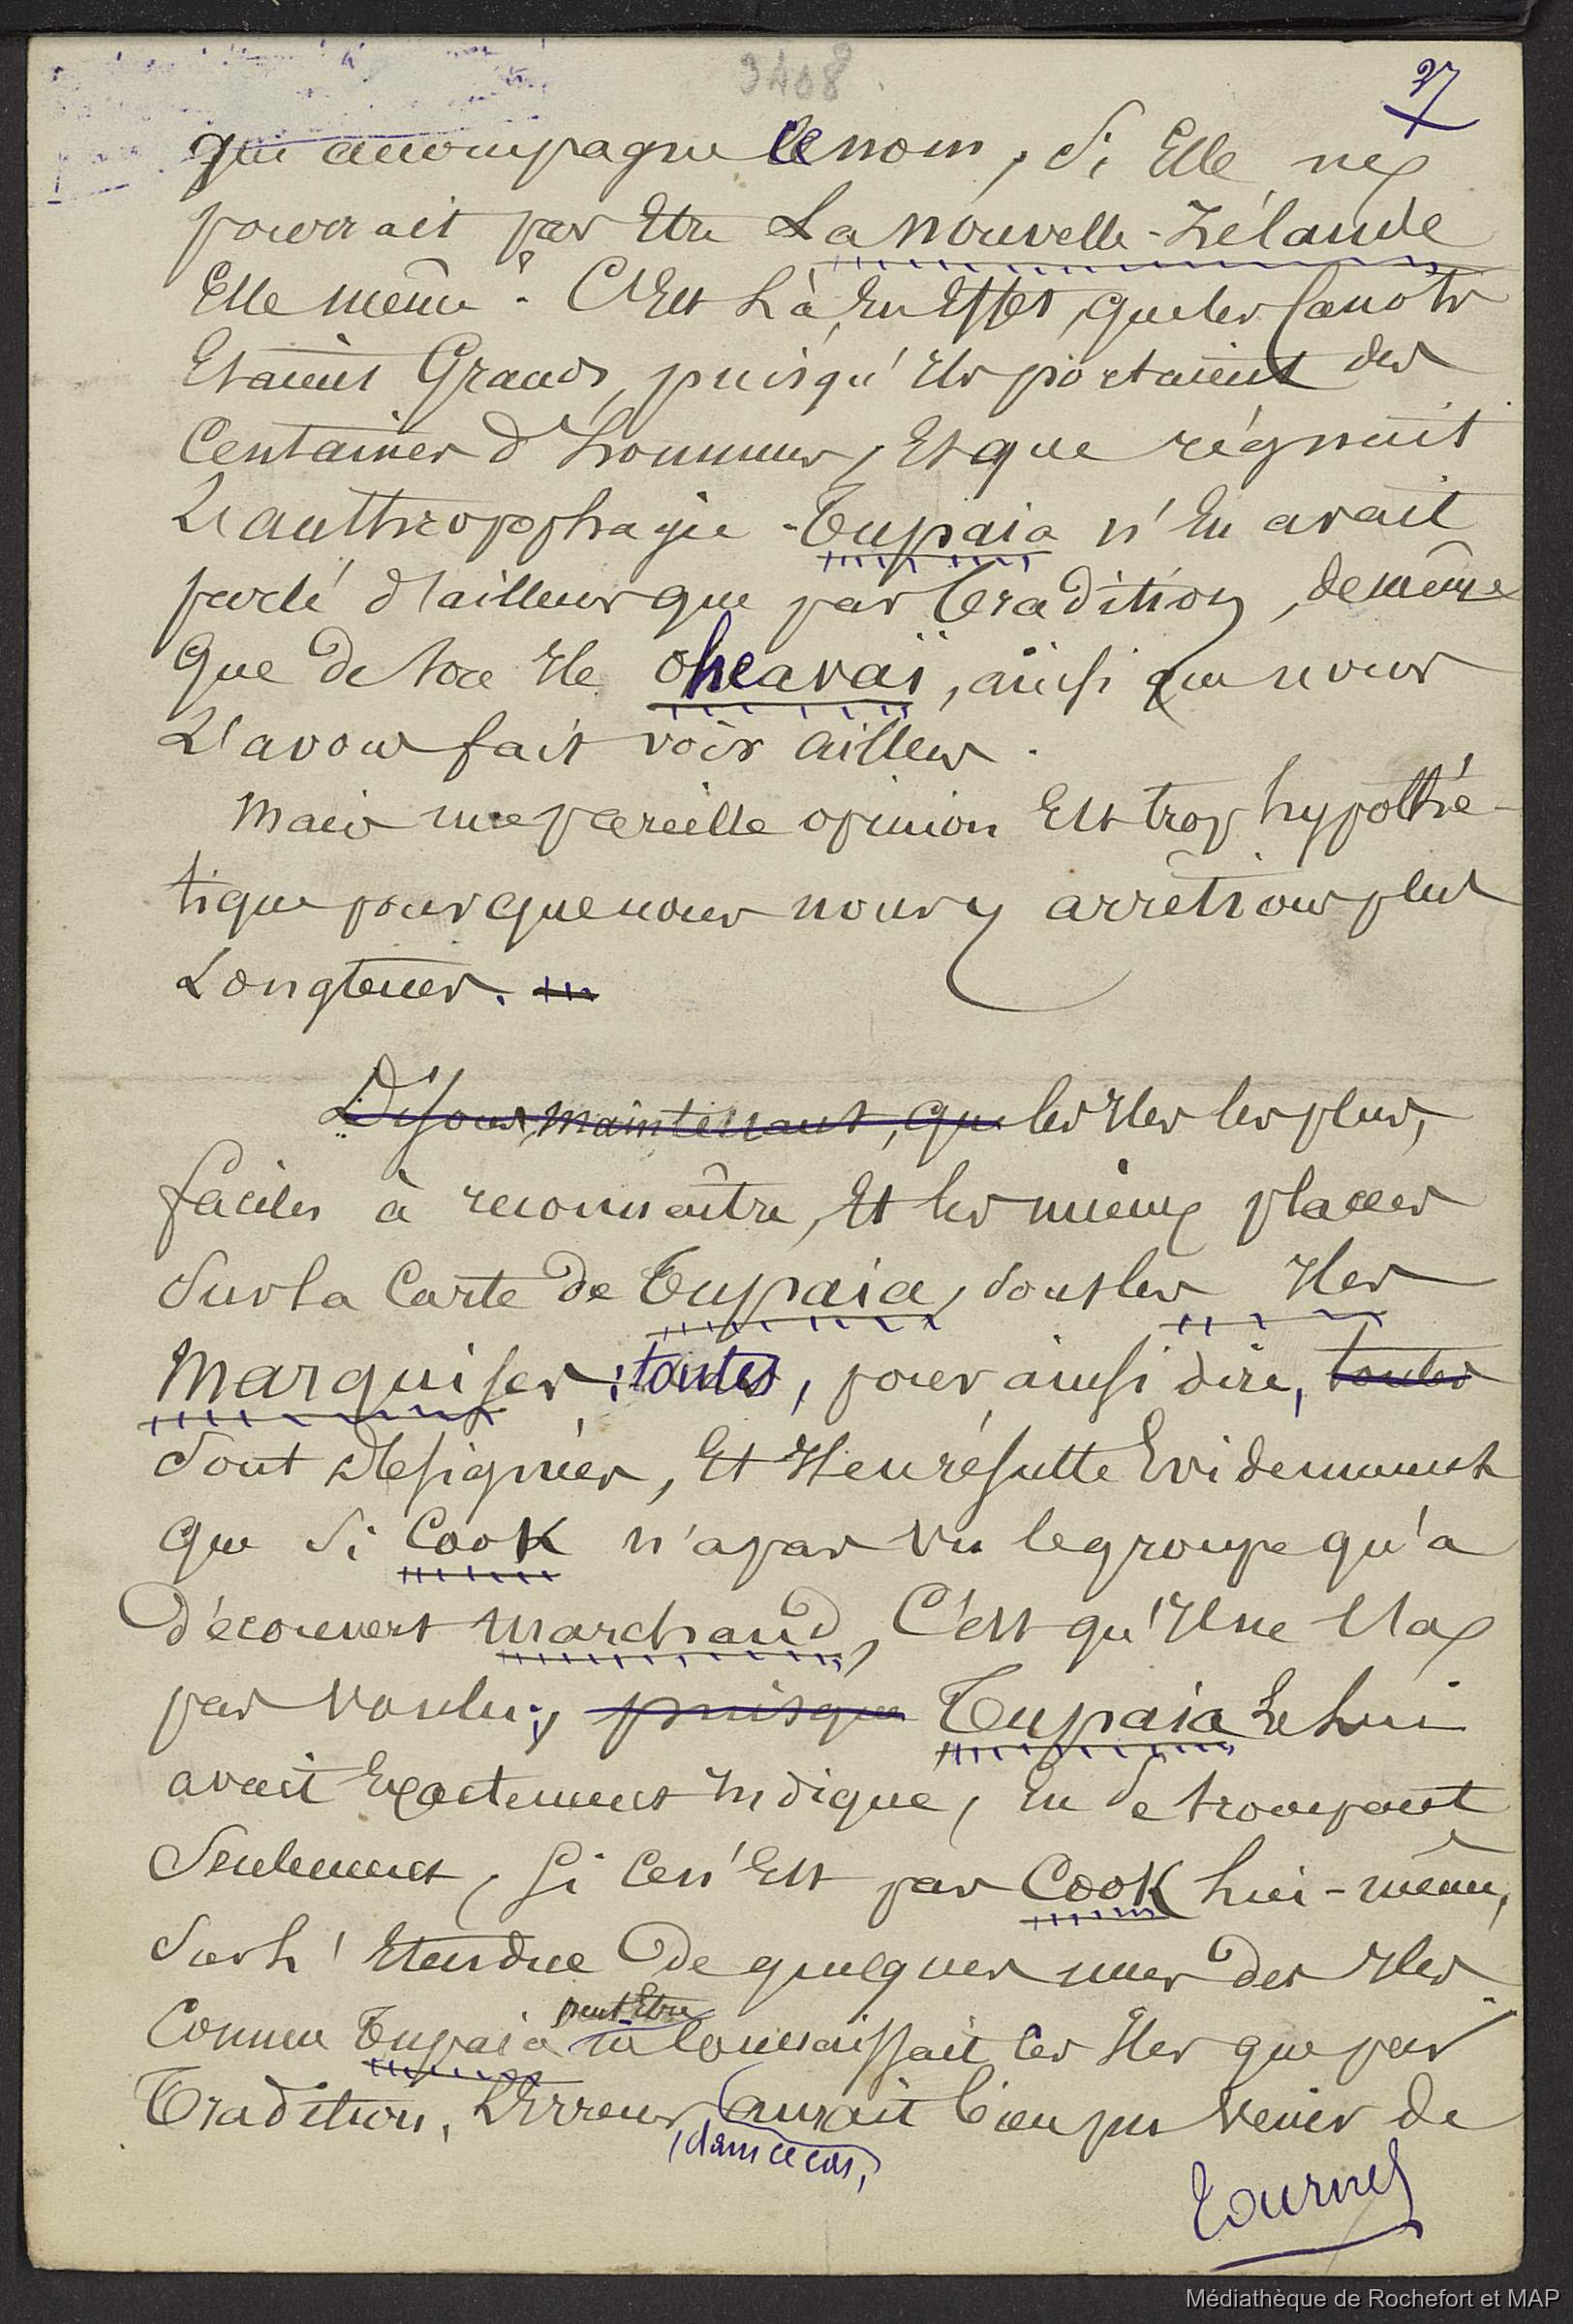 3408
27
qui accompagne le nom, si Elle ne
pourrait pas Etre La Nouvelle-Zélande
Elle même. C'Est Là, En Effet, que les Canots
Etaient Grands, puisqu'Ils portaient des
Centaines d'hommes, Et que régnait
L'anthropophagie. Tupaia n'En avait
parlé d'ailleurs que par Tradition, de même
que de son Ile Oheavaï, ainsi que nous
L'avons fait voir ailleurs.
Mais une pareille opinion Est trop hypothé-
tique pour que nous nous y arrêtions plus
Longtems.
Disons, maintenant, que les Iles les plus,
faciles à reconnaître, Et les mieux placées
Sur la Carte de Tupaia, sont les Iles
Marquises : toutes, pour ainsi dire, toutes
Sont désignées, Et Il en résulte Evidemment
que Si Cook n'a pas vu le groupe qu'a
découvert Marchand, C'est qu'Il ne l'a
pas voulu; puisque Tupaia Le Lui
avait Exactement Indiqué, En Se trompant
Seulement, Si Ce n'Est pas Cook Lui-même,
Sur L'Etendue de quelques unes des Iles.
Comme Tupaia peut Etre ne Connaissait ces Iles que par
Tradition, L'Erreur aurait bien pu venir de
, dans ce cas,
Tournez
Médiathèque de Rochefort et MAP